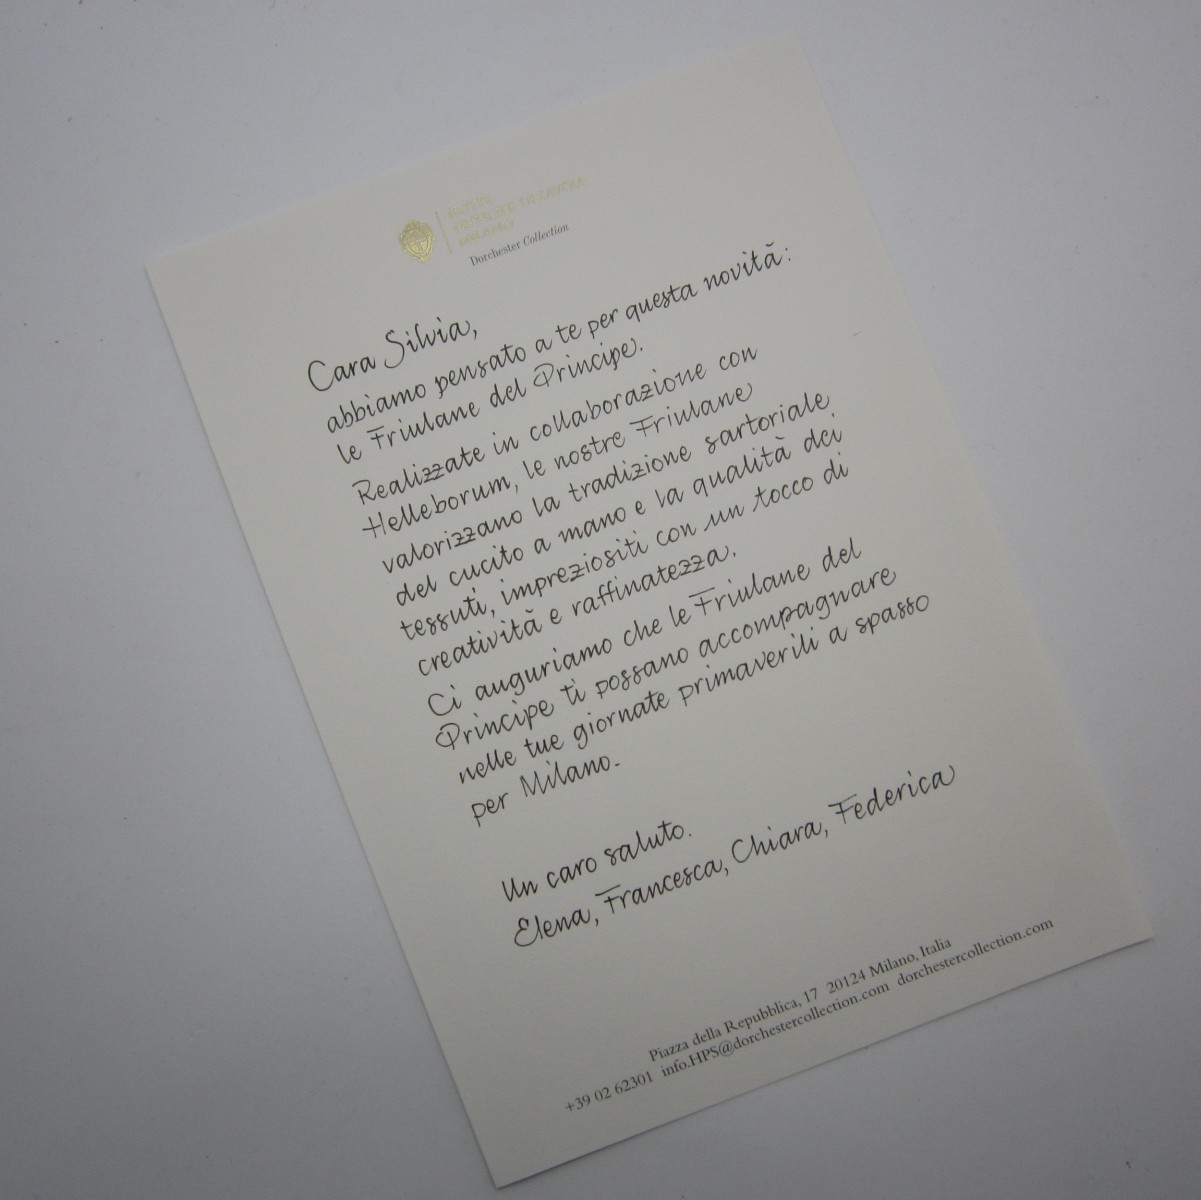 PRINCIPE
DI SAVOIA
MILANO
Dorchester Collection
Cara Silvia,
abbiamo pensato a te per questa novità:
le Friulane del Principe.
Realizzate in collaborazione con
Helleborum, le nostre Friulane
valorizzano la tradizione sartoriale
del cucito a mano e la qualità dei
tessuti, impreziositi con un tocco di
creatività e raffinatezza.
Ci auguriamo che le Friulane del
Principe ti possano accompagnare
nelle tue giornate primaverili a spasso
per Milano.
Un caro saluto.
Elena, Francesca, Chiara, Federica
Piazza della Repubblica, 17 20124 Milano, Italia
+39 02 62301 info.HPS@dorchestercollection.com dorchestercollection.com